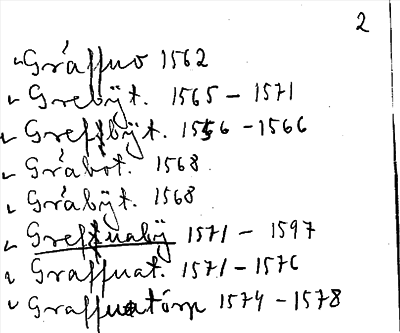 2
Gráffuo 1562
Grebÿt. 1565 – 1571
Greffbÿt. 1556 – 1566
Grabot. 1568
Grabÿt. 1568
Greffnabÿ 1571 – 1597
Graffnat. 1571 – 1576
Graffnatórp 1574 – 1578